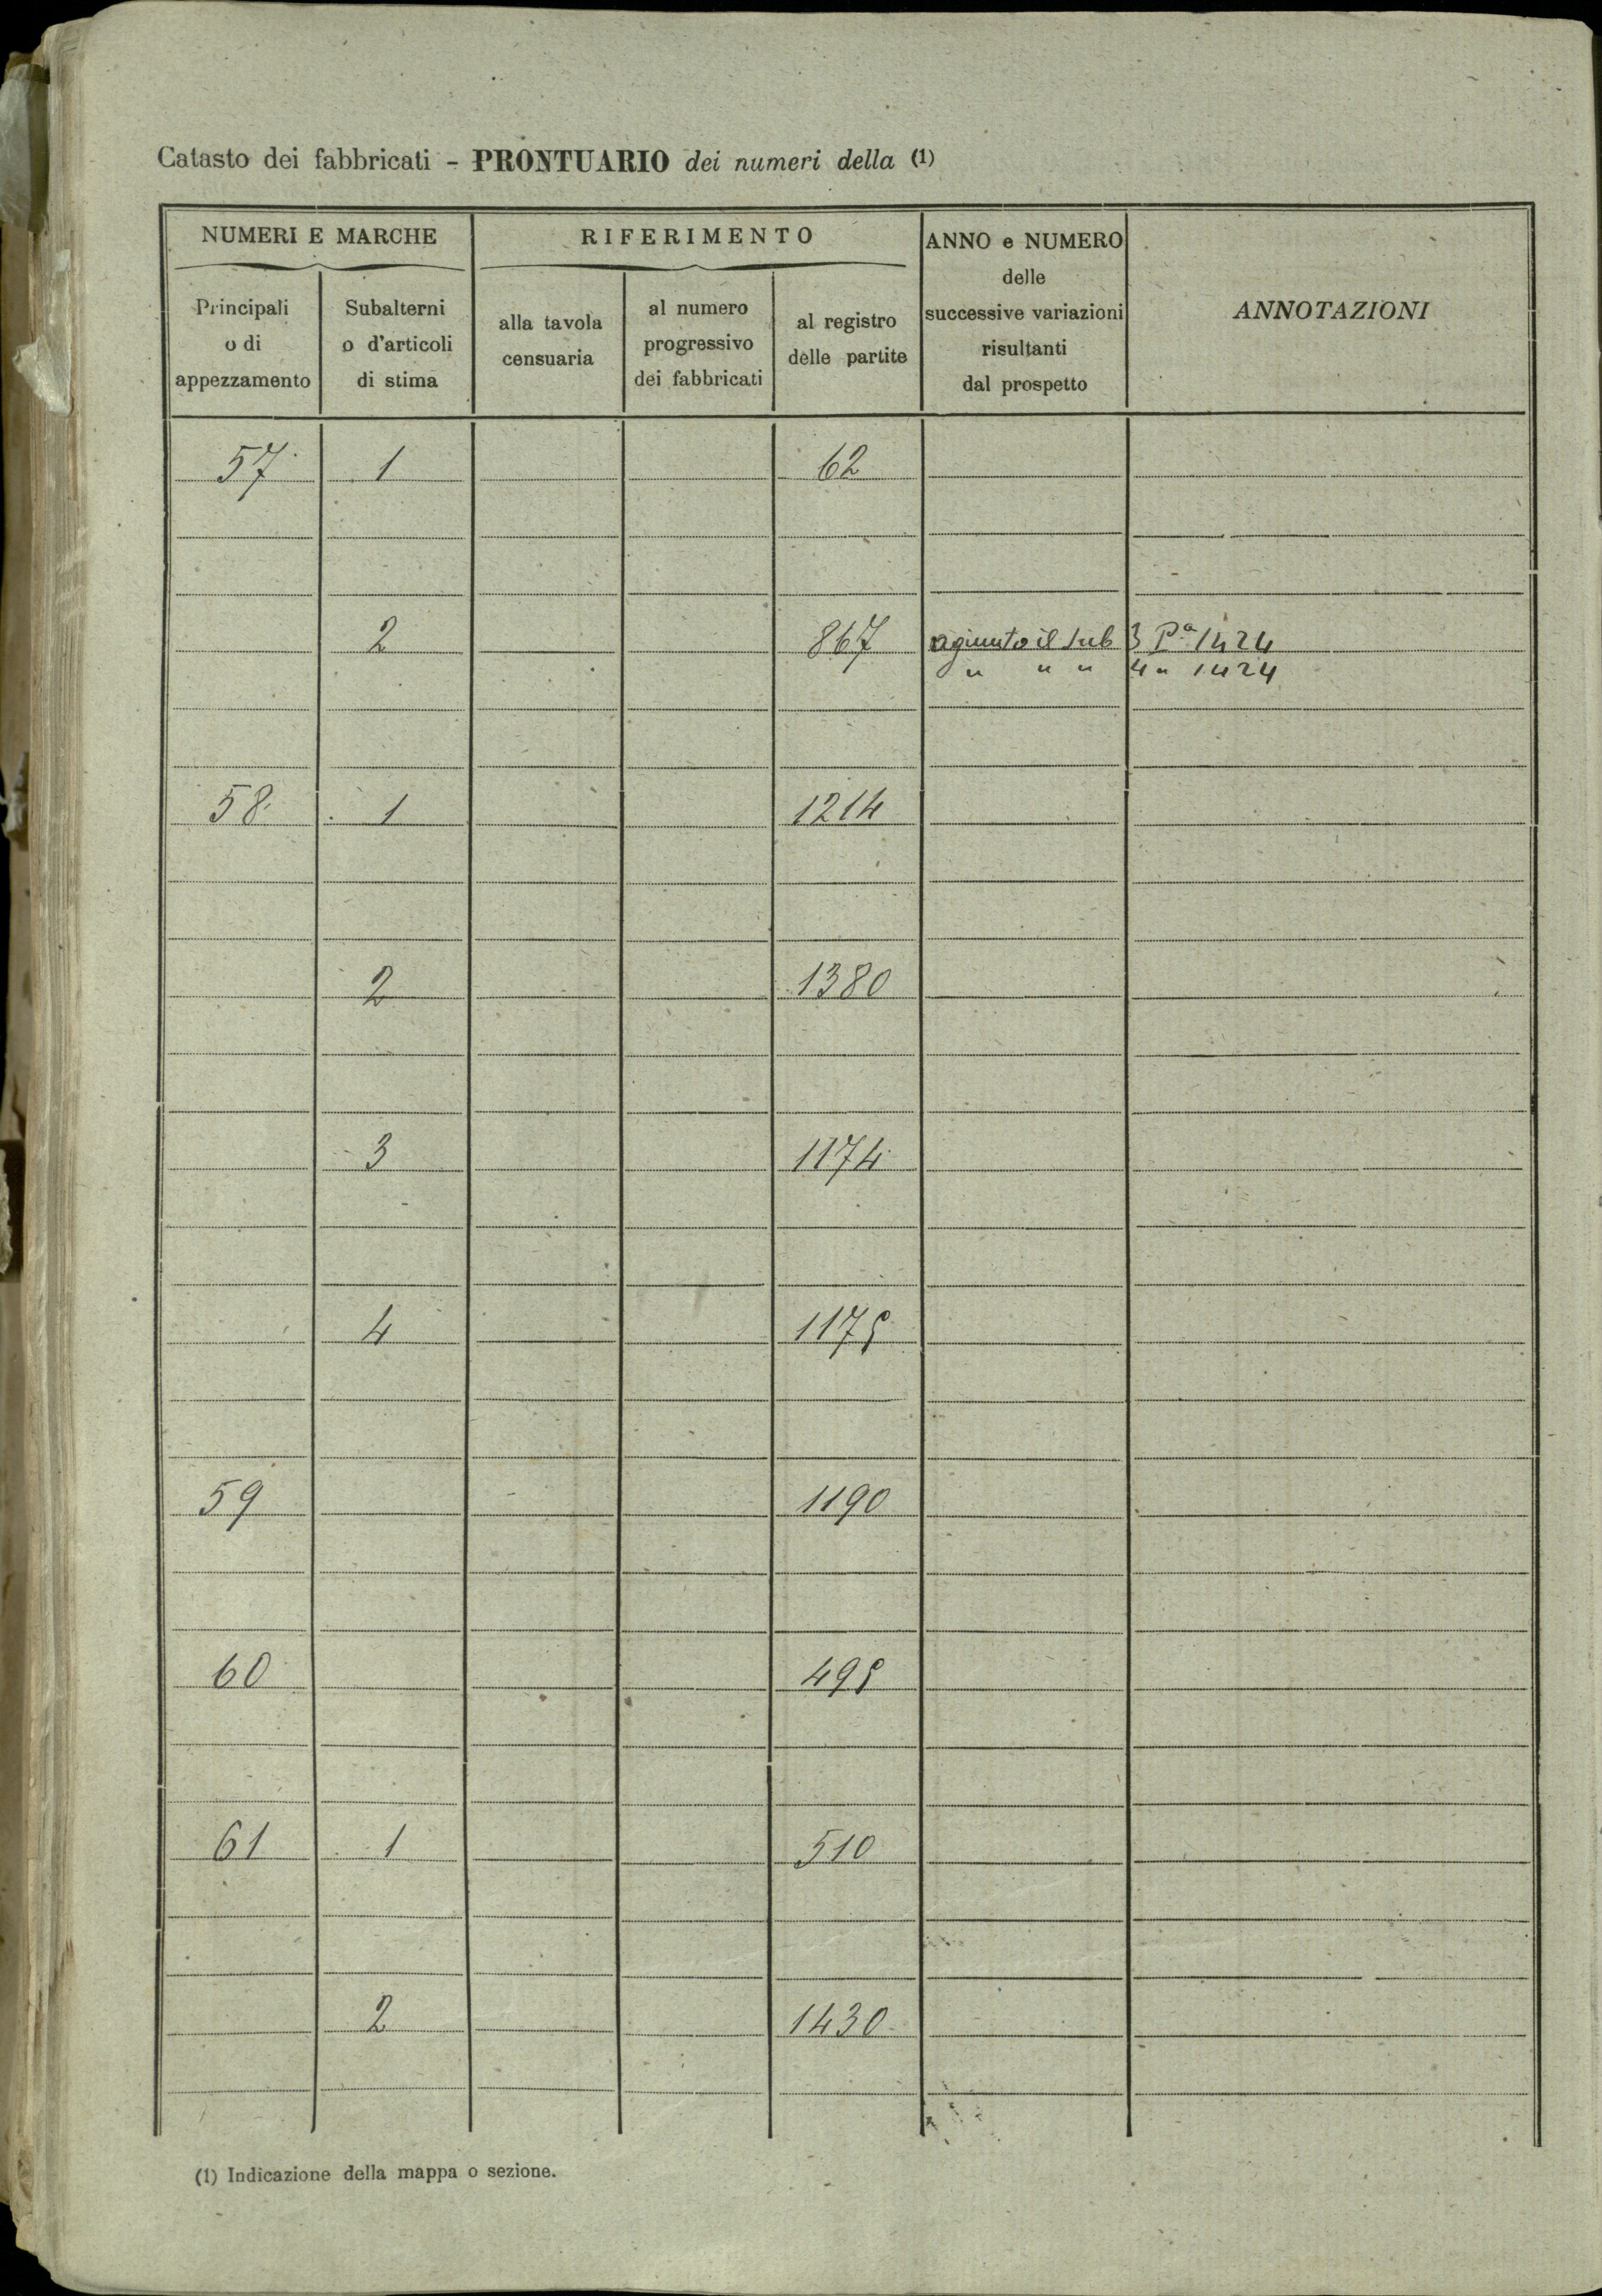 Catasto dei fabbricati - PRONTUARIO dei numeri della (1)
NUMERI E MARCHE
RIFERIMENTO
ANNO e NUMERO
delle
successive variazioni
risultanti
dal prospetto
ANNOTAZIONI
Principali
o di
appezzamento
Subalterni
o d'articoli
di stima
alla tavola
censuaria
al numero
progressivo
dei fabbricati
al registro
delle partite
57 1 62
2 867 agiunto il sub 3 Pa 1424
" " " 4 " 1424
58 1 1214
2 1380
3 1174
4 1175
59 1190
60 495
61 1 510
2 1430
(1) Indicazione della mappa o sezione.